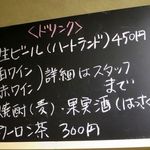 〈ドリンク〉
生ビール(ハートランド)450円
白ワイン
赤ワイン
)詳細はスタッフ
まで
焼酎(麦)・果実酒(はっさく
ウーロン茶 300円